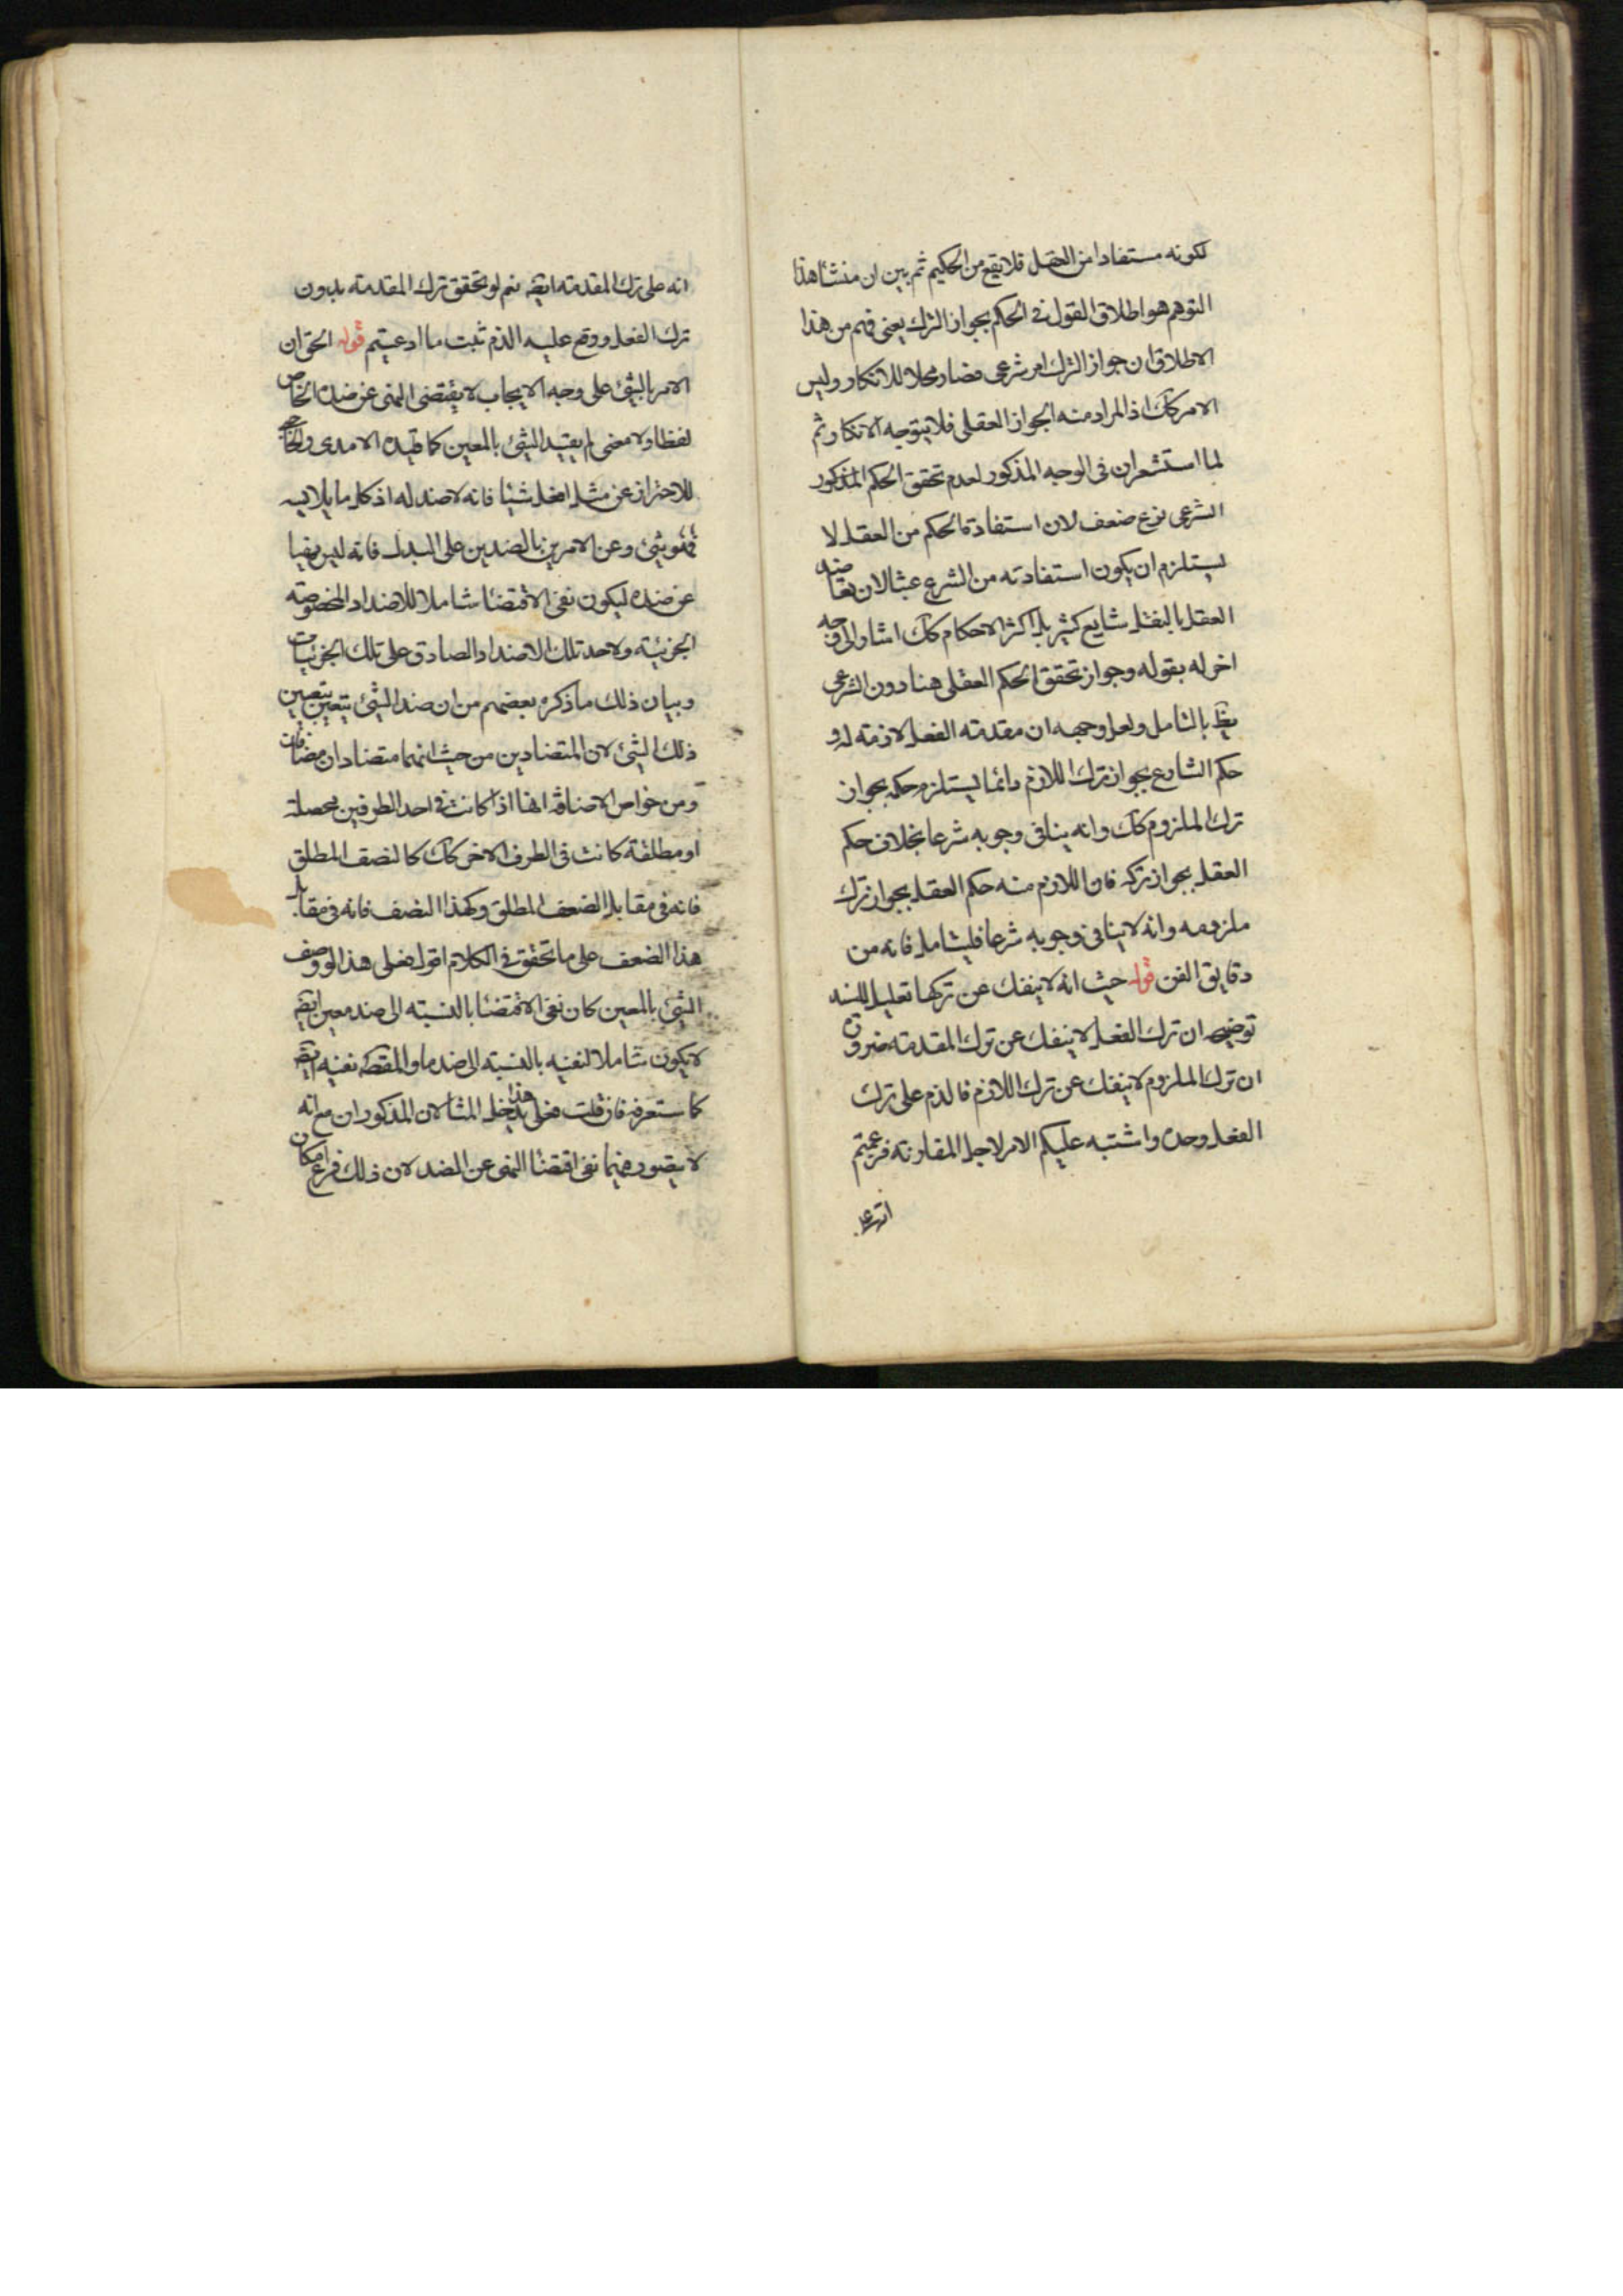 لكونه مستفادا من العقل فلا يقع من الحكيم ثم بين ان منشأ هذا
التوهم هو اطلاق القول في الحكم بجواز الترك يعنى فهم من هذا
الاطلاق ان جواز الترك امر شرعى فصار محلا للانكار وليس
الامر كك اذ المراد منه الجواز العقلى فلا يتوجه الانكار ثم
لما استشعر ان في الوجه المذكور لعدم تحقق الحكم المذكور
الشرعى نوع ضعف لان استفادة الحكم من العقل لا
يستلزم ان يكون استفادته من الشرع عبثا لان تعاضد
العقل بالنقل شايع كثير بل اكثر الاحكام كك اشار الى وجه
اخر له بقوله وجواز تحقق الحكم العقلى هنا دون الشرعى
يظ بالتامل ولعل وجهه ان مقدمة الفعل لازمة له و
حكم الشارع بجواز ترك اللازم دائما يستلزم حكمه بجواز
ترك الملزوم كك وانه ينافى وجوبه شرعا بخلاف حكم
العقل بجواز تركه فان اللازم منه حكم العقل بجواز ترك
ملزومه وانه لا ينافى وجوبه شرعا فليتامل فانه من
دقايق الفن قوله حيث انه لا ينفك عن تركها تعليل للسند
توضيحه ان ترك الفعل لا ينفك عن ترك المقدمة ضرورة
ان ترك الملزوم لا ينفك عن ترك اللازم فالذم على ترك
الفعل وحده واشتبه عليكم الامر لاجل المقارنة فزعمتم
انه على
انه على ترك المقدمة ايضه نعم لو تحقق ترك المقدمة بدون
ترك الفعل ووقع عليه الذم ثبت ما ادعيتم قوله الحق ان
الامر بالشئ على وجه الايجاب لا يقتضى النهى عن ضده الخاص
لفظا ولا معنى لم يقيد الشئ بالمعين كما قيده الامدى والحاجبى
للاحتراز عن مثل افعل شيئا فانه لا ضد له اذ كل ما يلابسه
فهو شئ وعن الامر بن بالضدين على البدل فانه ليس نهيا
عن ضده ليكون نفى الاقتضاء شاملا للاضداد المخصوصة
الجزئية ولاحد تلك الاضداد الصادق على تلك الجزئيات
وبيان ذلك ما ذكره بعضهم من ان ضد الشئ يتعين بتعيين
ذلك الشئ لان المتضادين من حيث انهما متضادان مضافان
ومن خواص الاضافة انها اذا كانت في احد الطرفين محصلة
او مطلقة كانت في الطرف الاخر كك كالنصف المطلق
فانه في مقابل الضعف المطلق وكهذا النصف فانه في مقابل
هذا الضعف على ما تحقق في الكلام اقول فعلى هذا لو وصف
الشئ بالمعين كان نفى الاقتضاء بالنسبة الى ضد معين ايضه
لا يكون شاملا لنفيه بالنسبة الى ضد ما والمقصه نفيه ايضه
كما ستعرفه فان قلت فعلى هذا يدخل المثالان المذكوران مع انه
لا يتصور فيهما نفى اقتضاء النهى عن الضد لان ذلك فرع امكان